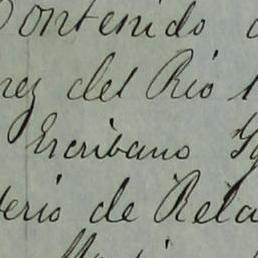 Contenido
nez del Rio
Escribano
terio de Rela